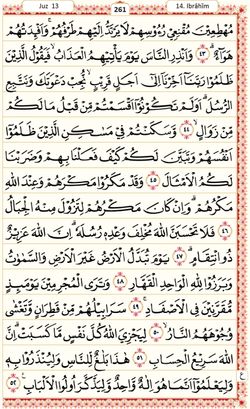 Juz 13
261
14. Ibrâhîm
مُهْطِعِيْنَ مُقْنِعِيْ رُءُوْسِهِمْ لَا يَرْتَدُّ اِلَيْهِمْ طَرْفُهُمْ ۚ وَاَفْـِٕدَتُهُمْ
هَوَآءٌ ؕ ﴿۴۳﴾ وَاَنْذِرِ النَّاسَ يَوْمَ يَاْتِيْهِمُ الْعَذَابُ فَيَقُوْلُ الَّذِيْنَ
ظَلَمُوْا رَبَّنَاۤ اَخِّرْنَاۤ اِلٰۤى اَجَلٍ قَرِيْبٍ ۙ نُّجِبْ دَعْوَتَكَ وَنَتَّبِعِ
الرُّسُلَ ؕ اَوَلَمْ تَكُوْنُوْۤا اَقْسَمْتُمْ مِّنْ قَبْلُ مَا لَكُمْ
مِّنْ زَوَالٍ ۙ ﴿۴۴﴾ وَّسَكَنْتُمْ فِيْ مَسٰكِنِ الَّذِيْنَ ظَلَمُوْۤا
اَنْفُسَهُمْ وَتَبَيَّنَ لَكُمْ كَيْفَ فَعَلْنَا بِهِمْ وَضَرَبْنَا
لَكُمُ الْاَمْثَالَ ﴿۴۵﴾ وَقَدْ مَكَرُوْا مَكْرَهُمْ وَعِنْدَ اللّٰهِ
مَكْرُهُمْ ؕ وَاِنْ كَانَ مَكْرُهُمْ لِتَزُوْلَ مِنْهُ الْجِبَالُ
﴿۴۶﴾ فَلَا تَحْسَبَنَّ اللّٰهَ مُخْلِفَ وَعْدِهٖ رُسُلَهٗ ؕ اِنَّ اللّٰهَ عَزِيْزٌ
ذُو انْتِقَامٍ ؕ ﴿۴۷﴾ يَوْمَ تُبَدَّلُ الْاَرْضُ غَيْرَ الْاَرْضِ وَالسَّمٰوٰتُ
وَبَرَزُوْا لِلّٰهِ الْوَاحِدِ الْقَهَّارِ ﴿۴۸﴾ وَتَرَى الْمُجْرِمِيْنَ يَوْمَىِٕذٍ
مُّقَرَّنِيْنَ فِي الْاَصْفَادِ ۚ ﴿۴۹﴾ سَرَابِيْلُهُمْ مِّنْ قَطِرَانٍ وَّتَغْشٰى
وُجُوْهَهُمُ النَّارُ ۙ ﴿۵۰﴾ لِيَجْزِيَ اللّٰهُ كُلَّ نَفْسٍ مَّا كَسَبَتْ ؕ اِنَّ
اللّٰهَ سَرِيْعُ الْحِسَابِ ﴿۵۱﴾ هٰذَا بَلٰغٌ لِّلنَّاسِ وَلِيُنْذَرُوْا بِهٖ
وَلِيَعْلَمُوْۤا اَنَّمَا هُوَ اِلٰهٌ وَّاحِدٌ وَّلِيَذَّكَّرَ اُولُوا الْاَلْبَابِ ﴿۵۲﴾